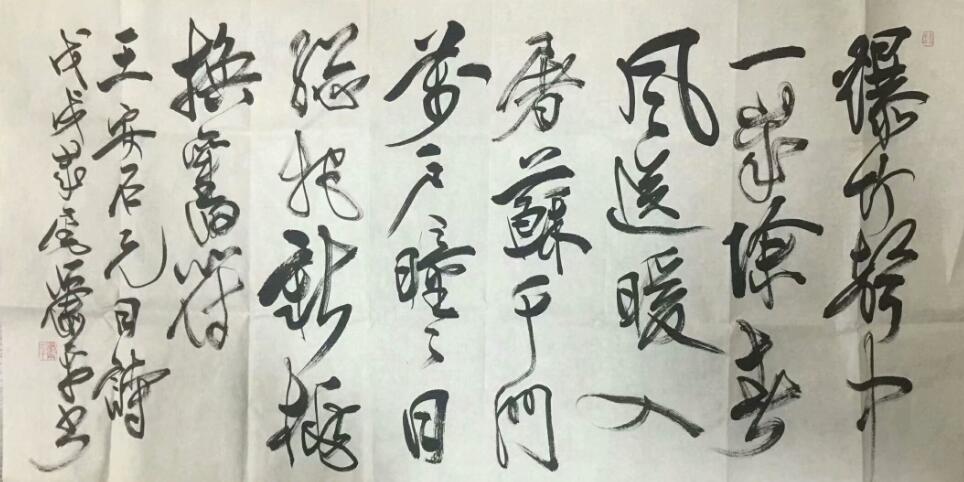 爆竹聲中
一歲除春
風送暖入
屠蘇千門
萬戶曈〻日
總把新桃
換舊符
王安石元日詩
戊戌歲尾